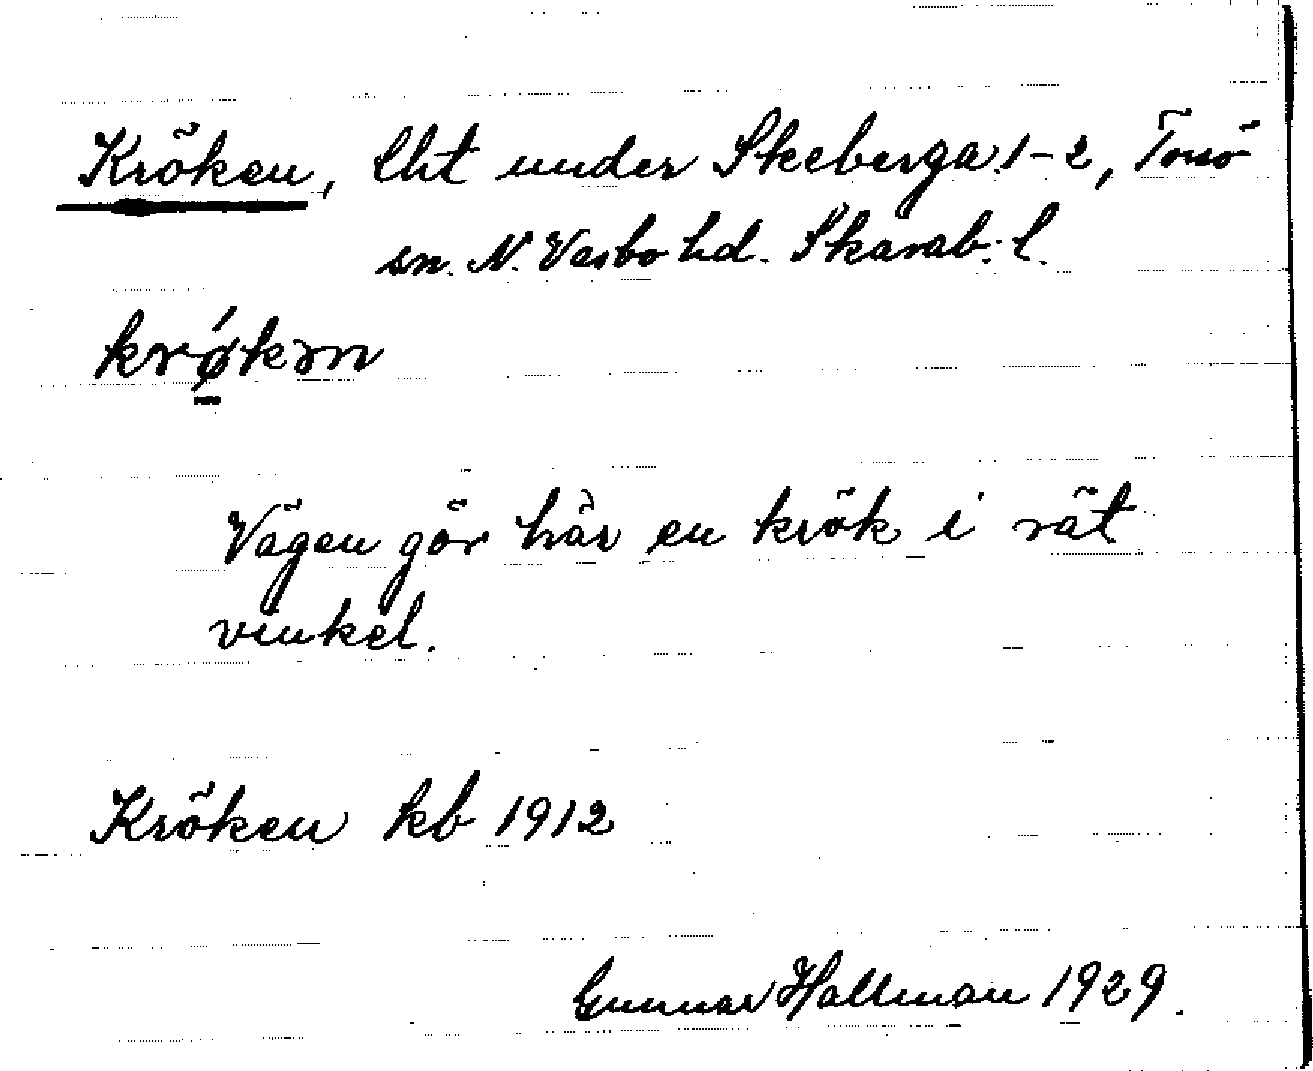 Kröken, lht under Skeberga 1-2, Torsö
sn. N. Vasbo hd. Skarab. l.
krǿkən
Vägen gör här en krök i rät
vinkel.
Kröken kb 1912
Gunnar Hallman 1929.